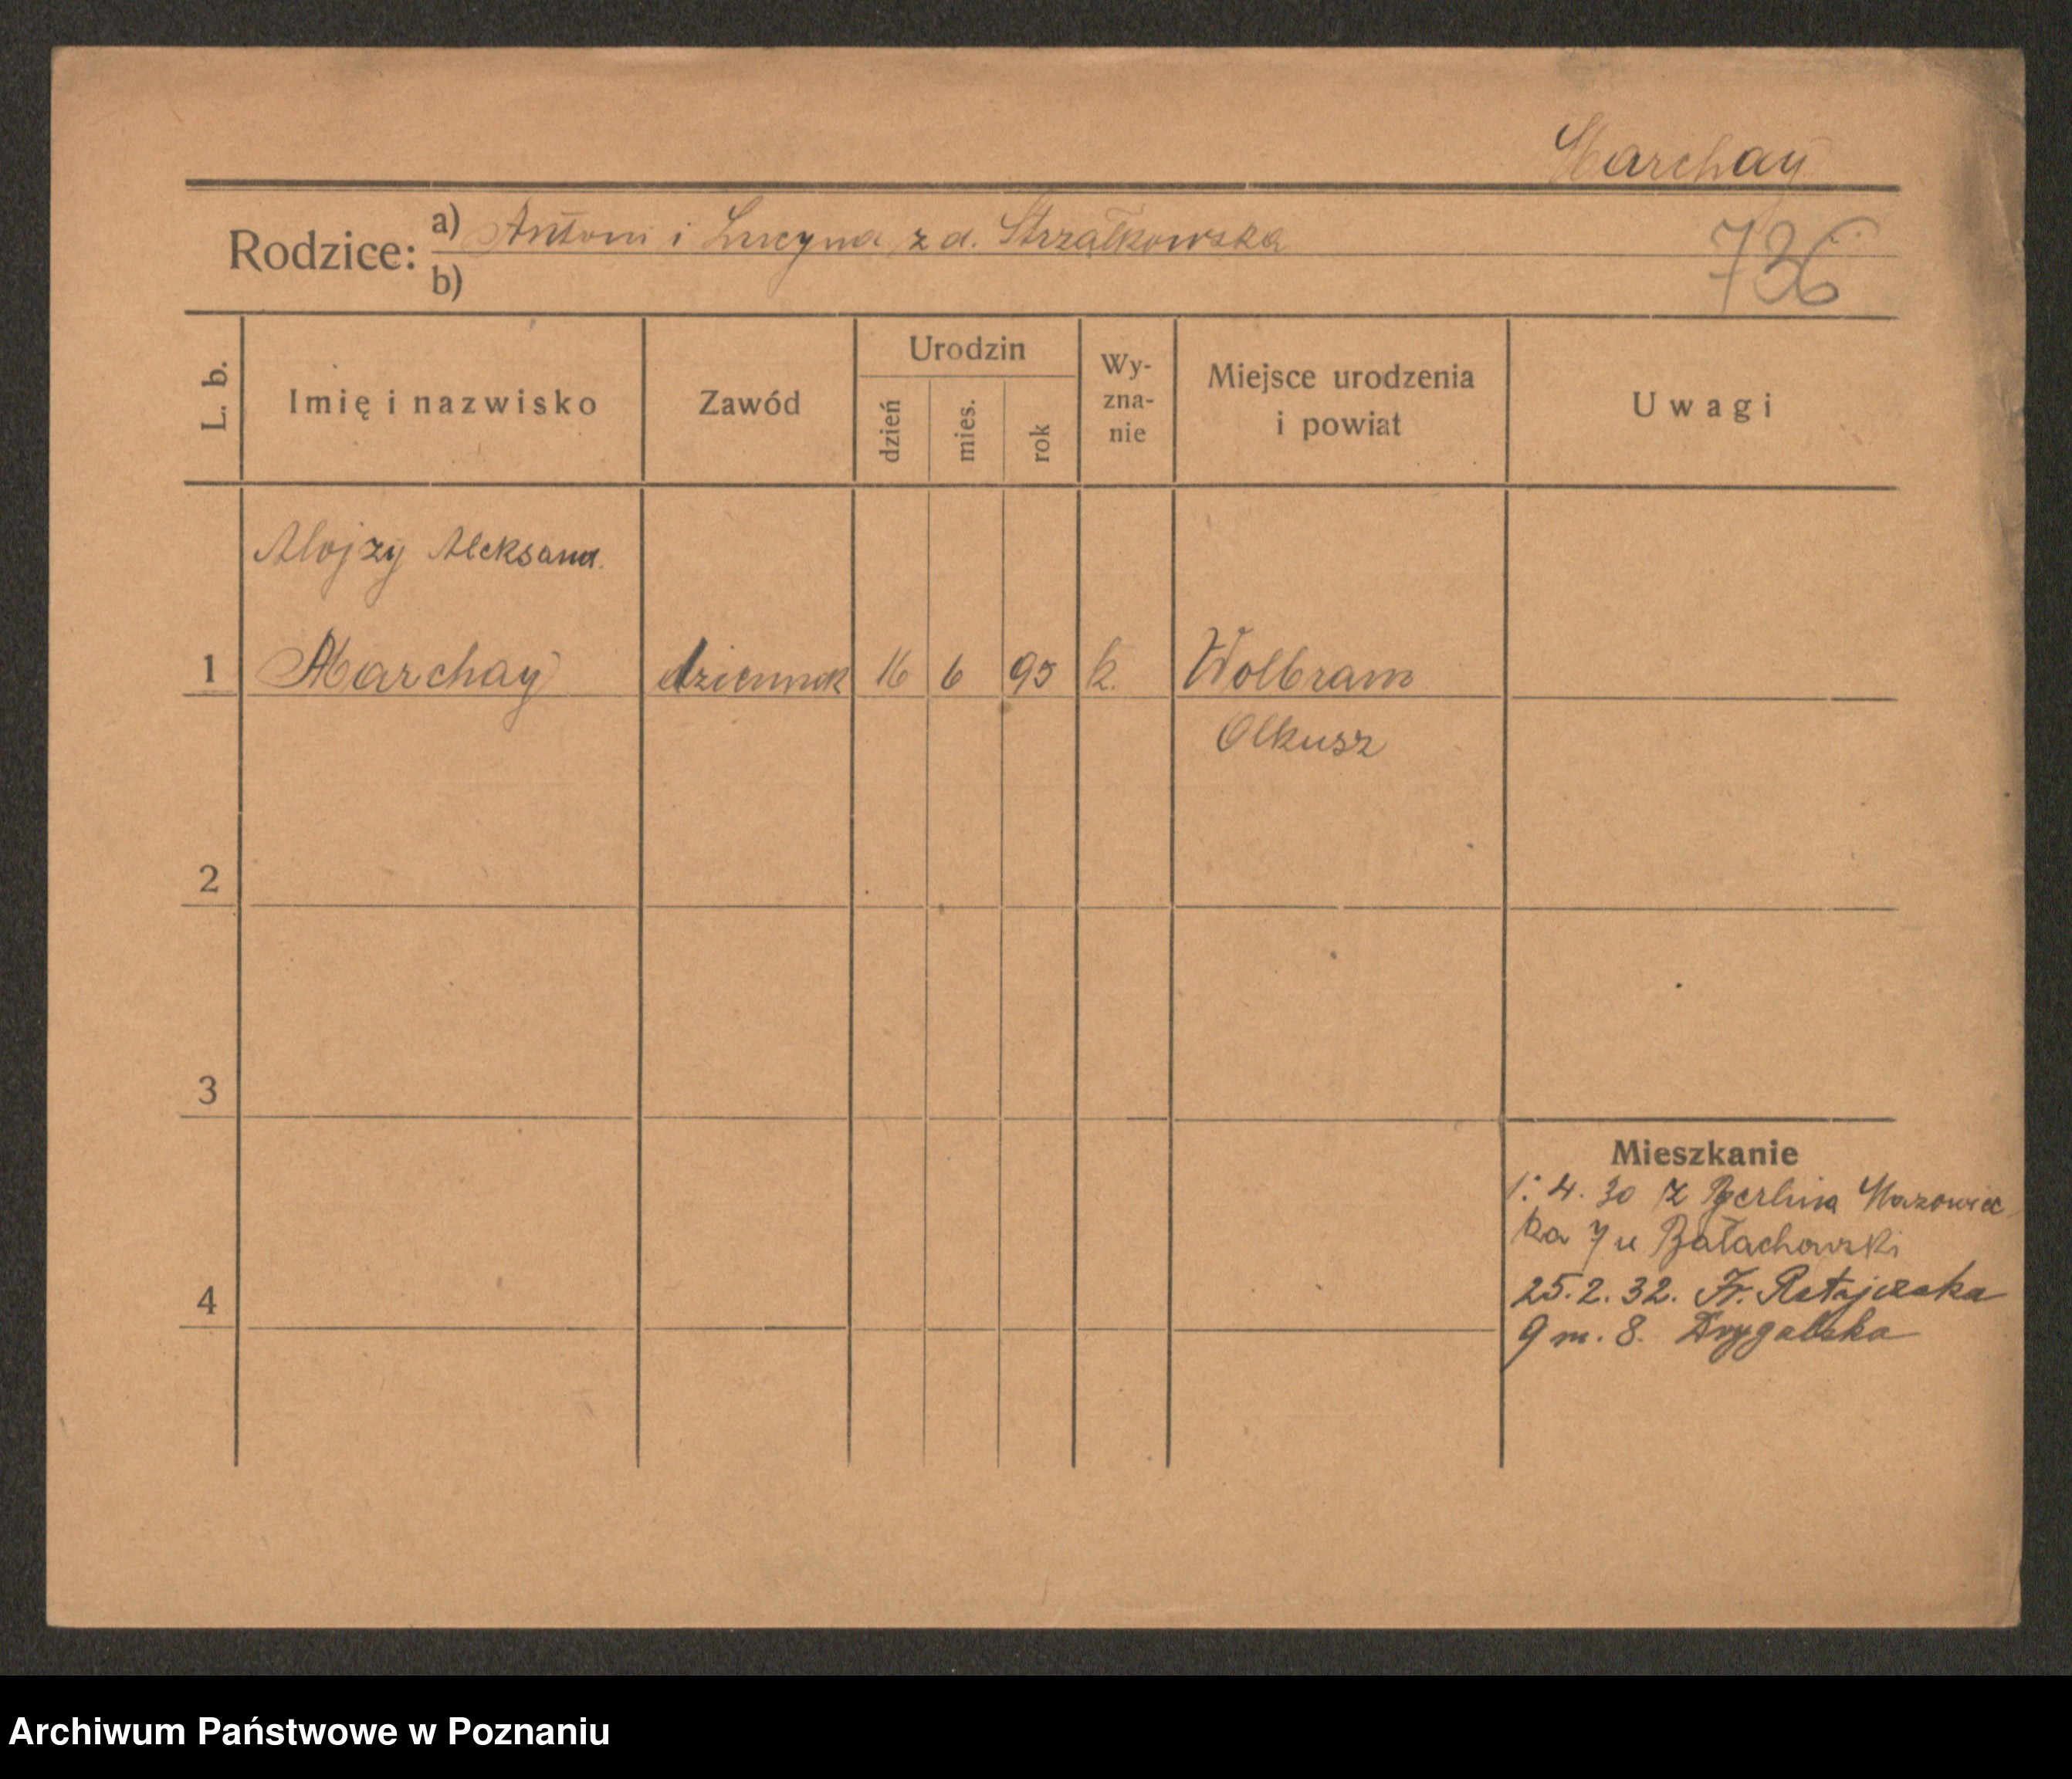 Marchay
Rodzice: a) Antoni i Lucyna z d. Strzałkowska
736
b)
L. b.
Imię i nazwisko
Zawód
Urodzin
dzień
mies.
rok
Wy-
zna-
nie
Miejsce urodzenia
i powiat
Uwagi
Alojzy Aleksand.
1 Marchay dziennik 16 6 95 k. Wolbram
Olkusz
2
3
Mieszkanie
1. 4. 30 z Berlina Mazowiec
ka 7 u Bałachowski
25. 2. 32. Fr. Ratajczaka
4
9 m. 8. Drygalska
Archiwum Państwowe w Poznaniu